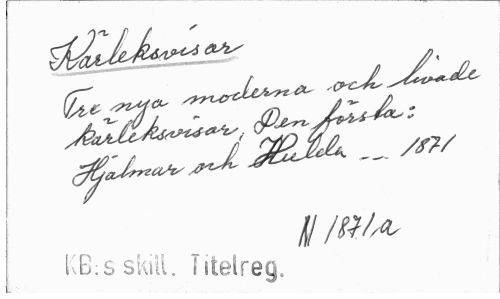 Kärleksvisor
Tre nya moderna och livade
kärleksvisor. Den första:
Hjalmar och Hulda -- 1871
N 1871,a
KB:s skill. Titelreg.